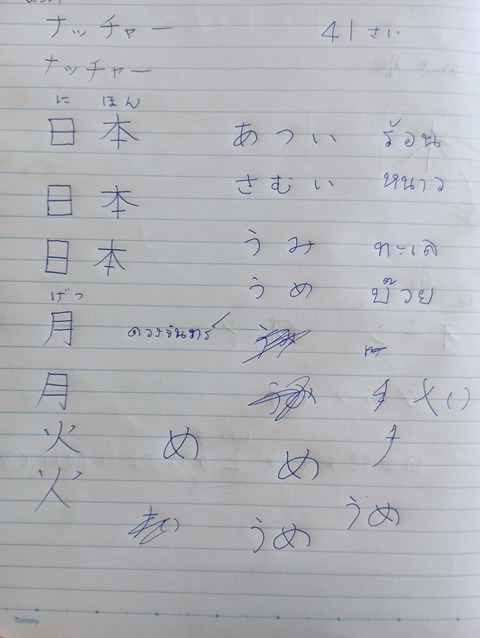 ナッチャー 41さい
ナッチャー
に ほん
日 本 あつい ร้อน
さむい หนาว
日 本
日 本 うみ ทะเล
うめ บ๊วย
げつ
月 ดวงจันทร์
月
火 め
め
火
うめ
うめ
Tommy